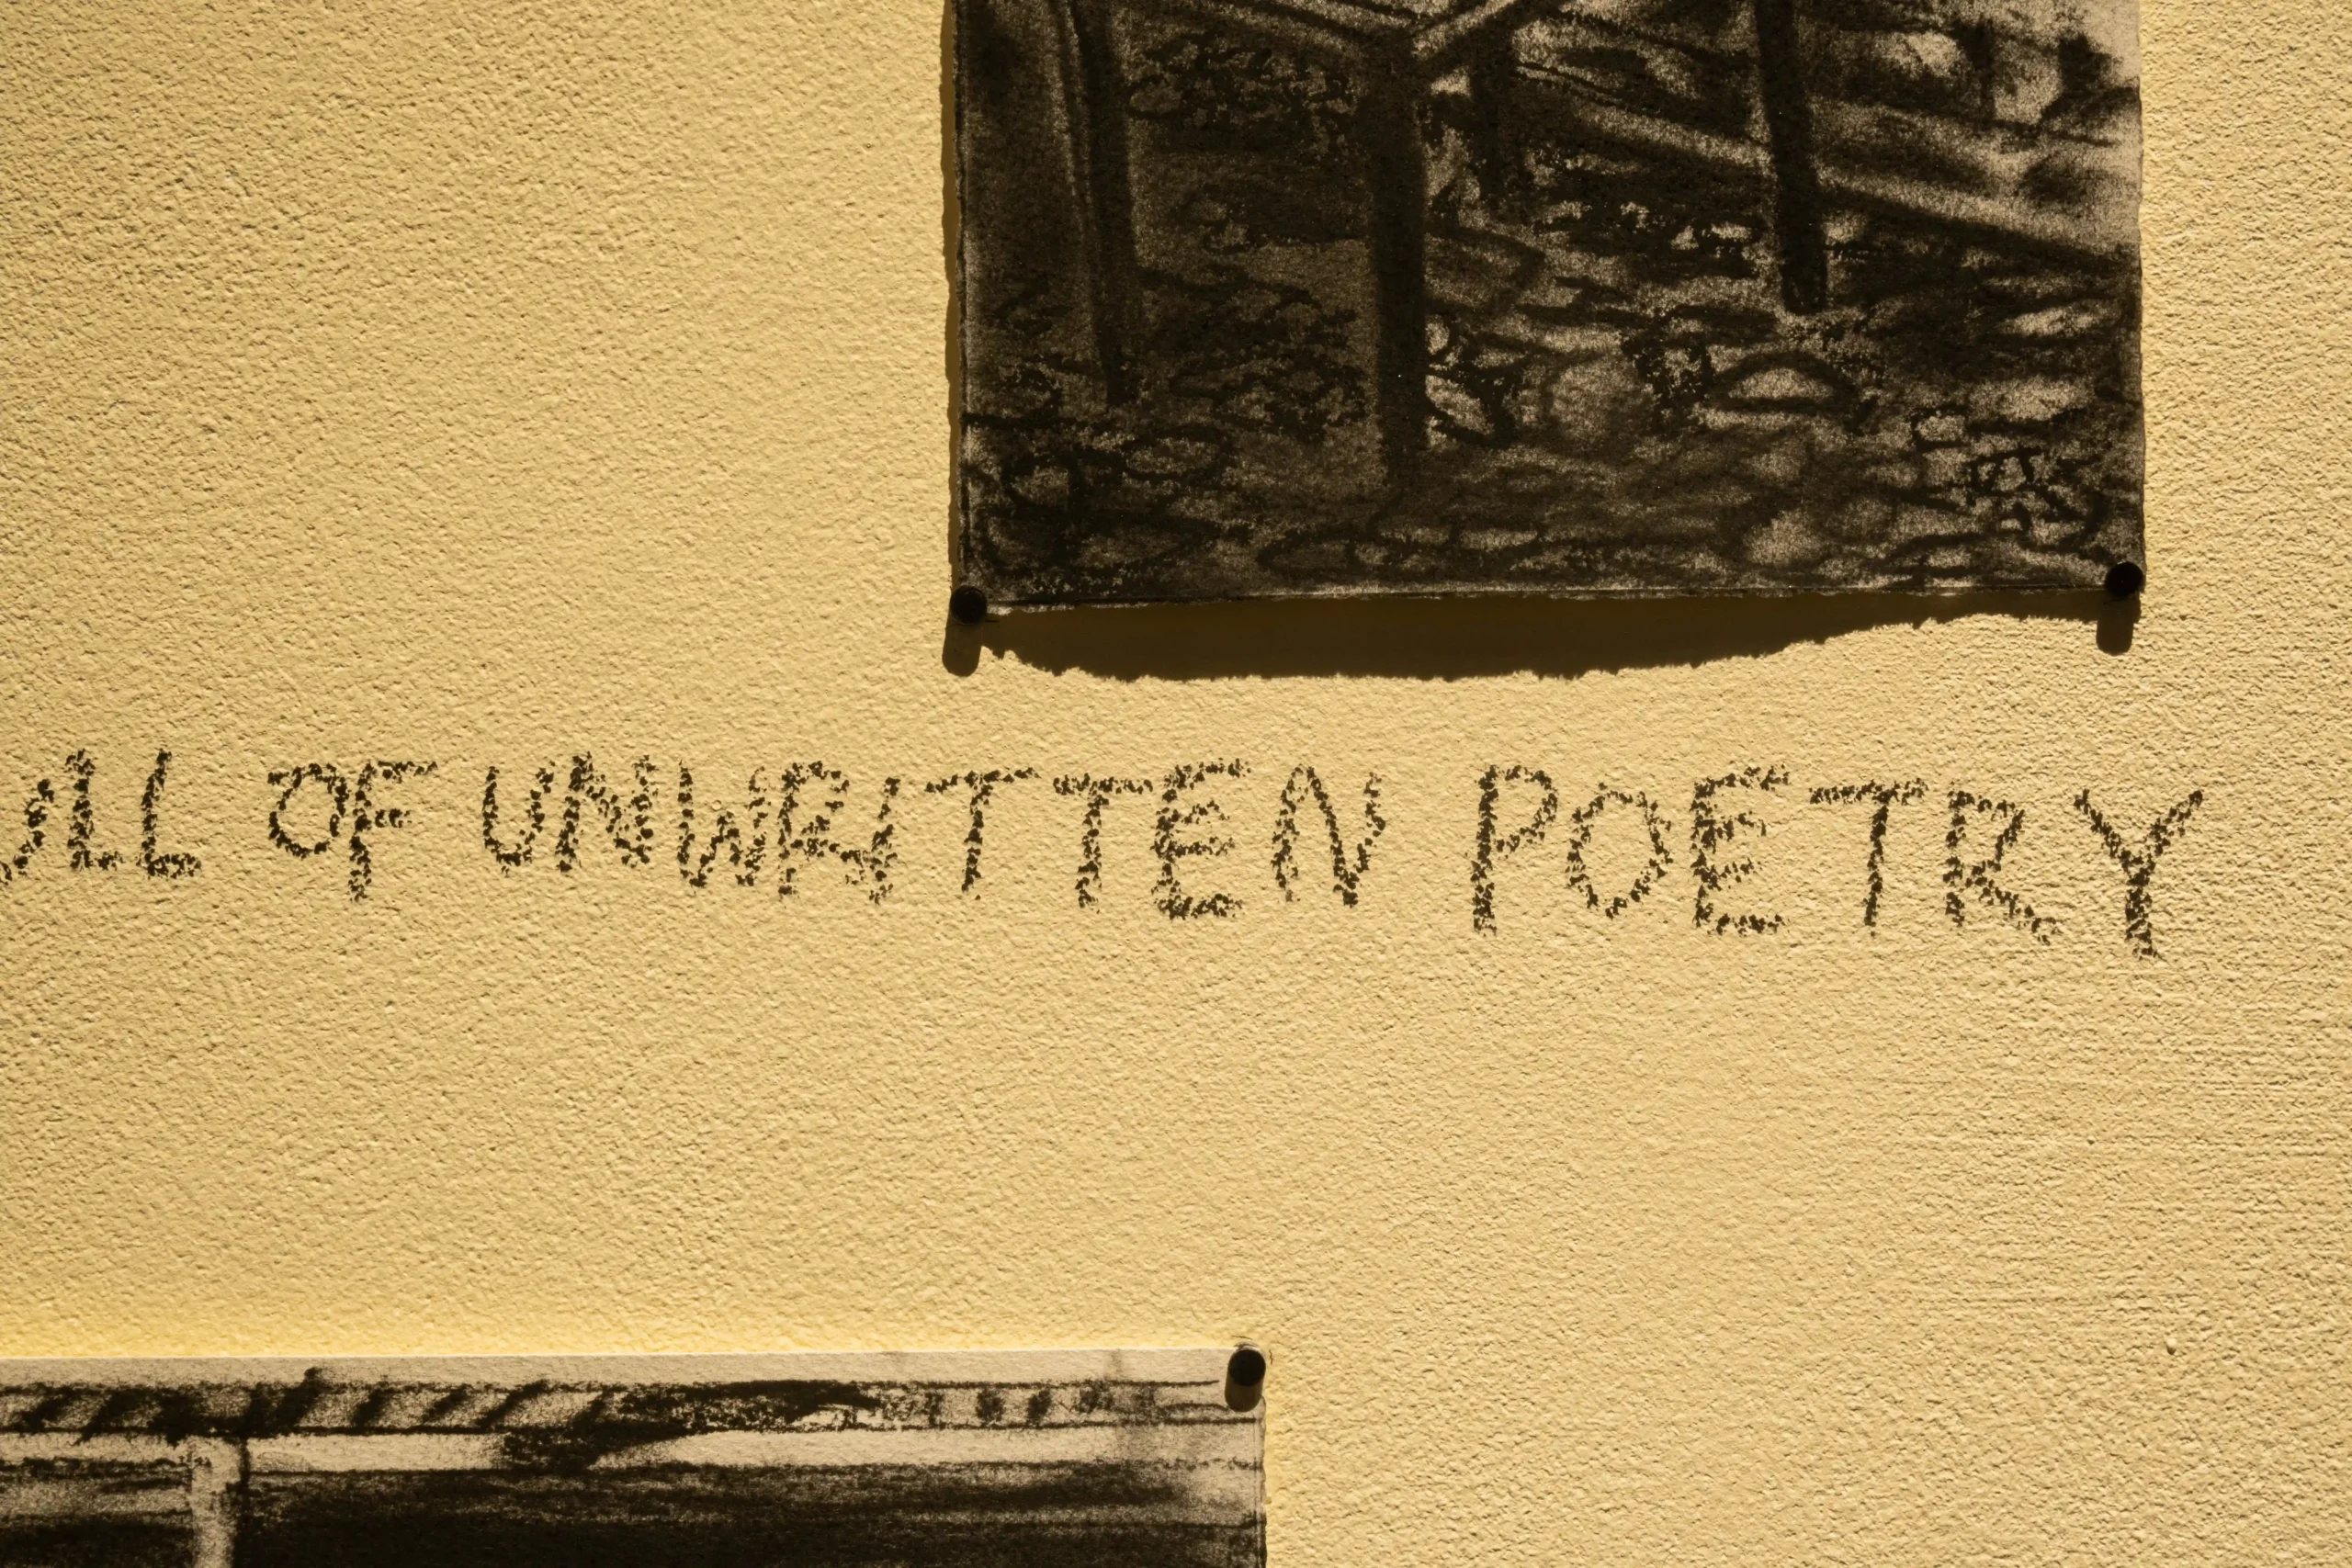 OF UNWRITTEN POETRY